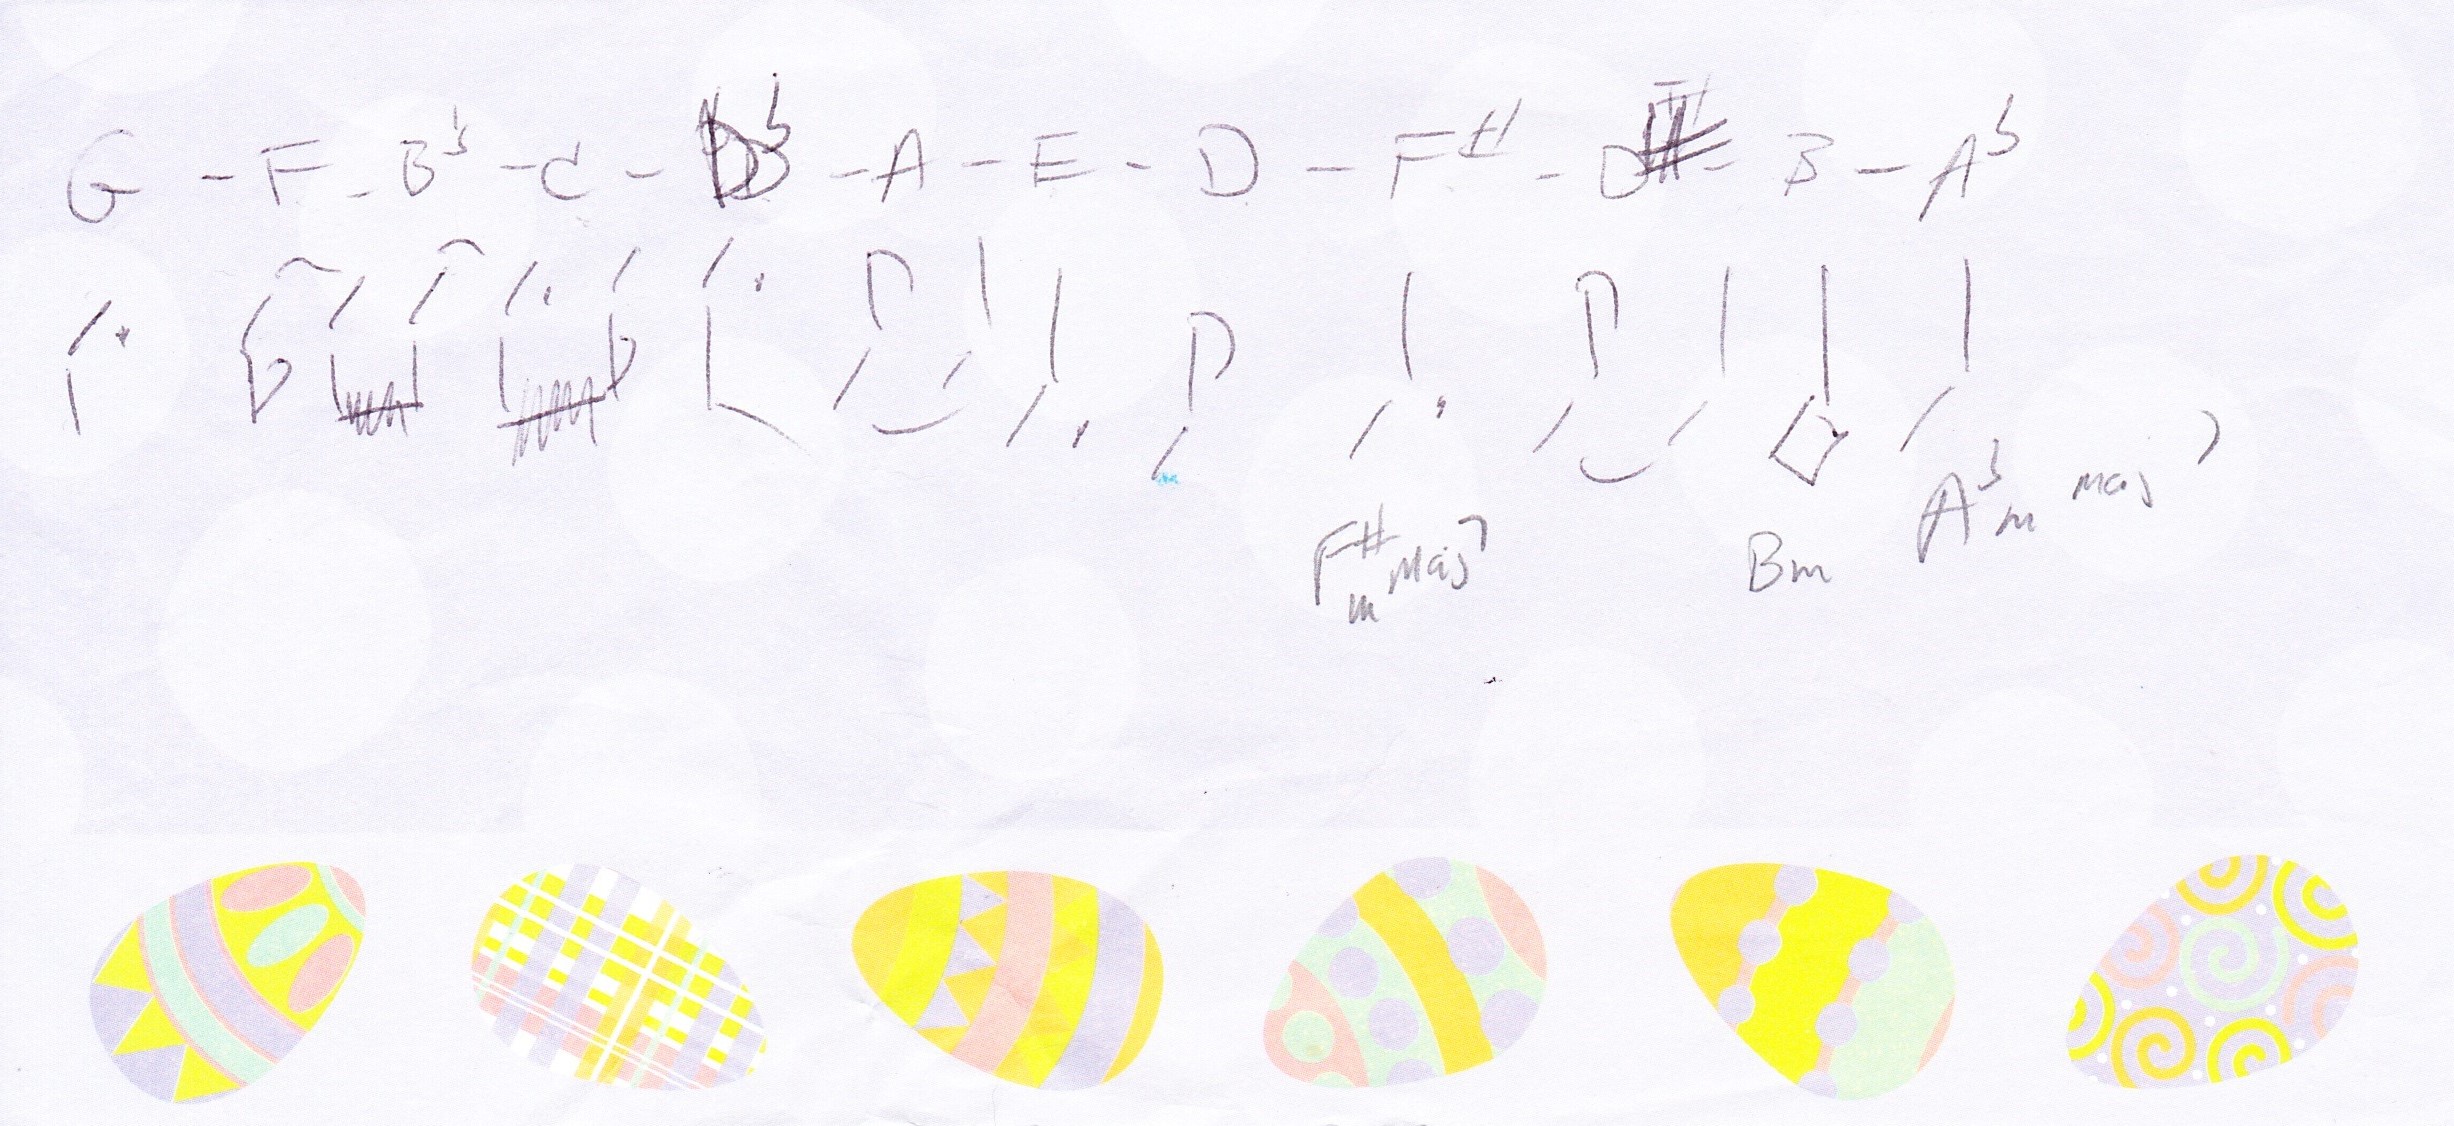 G - F - B♭ - C - D♭ - A - E - D - F# - D - B - A♭
F#m maj7 Bm A♭m maj7